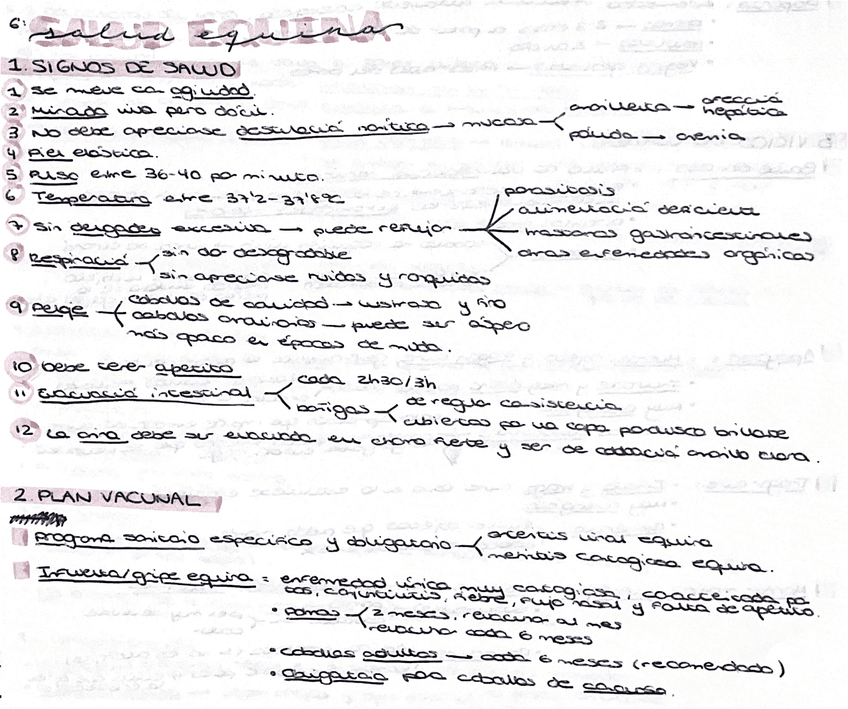 6: SALUD EQUINA
salud equina
1. SIGNOS DE SALUD
1 Se mueve con agilidad.
2 Mirada viva pero dócil.
3 No debe apreciarse destilación narítica → mucosa amarillenta → afección hepática
pálida → anemia
4 Piel elástica.
5 Pulso entre 36-40 por minuto.
6 Temperatura entre 37'2-37'8ºC
7 Sin delgadez excesiva → puede reflejar parasitosis
alimentación deficiente
trastornos gastrointestinales
otras enfermedades orgánicas
8 Respiración sin olor desagradable
sin apreciarse ruidos y ronquidos
9 Pelaje caballos de calidad → lustroso y fino
caballos ordinarios → puede ser áspero
más opaco en épocas de muda.
10 Debe tener apetito
11 Evacuación intestinal cada 2h30/3h
boñigas de regular consistencia
cubiertas por una capa pardusca brillante
12 La orina debe ser evacuada en chorro fuerte y ser de coloración amarillo claro.
2. PLAN VACUNAL
Programa sanitario específico y obligatorio arteritis viral equina
metritis contagiosa equina.
Influenza/gripe equina = enfermedad vírica muy contagiosa, caracterizada por
tos, conjuntivitis, fiebre, flujo nasal y falta de apetito.
• potros 2 meses, revacunar al mes
revacunar cada 6 meses
• caballos adultos → cada 6 meses (recomendado)
• Obligatoria para caballos de concurso.